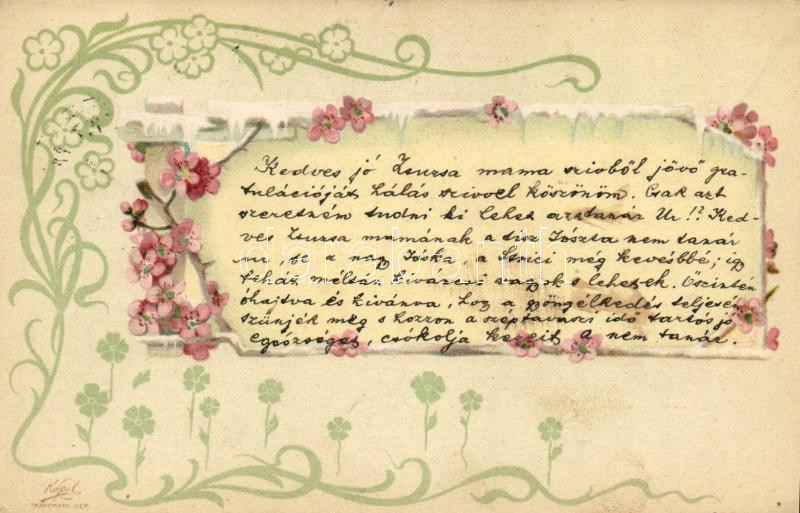 Kedves jó Zsuzsa mama szivből jövő gra-
tulációját hálás szivvel köszönöm. Csak azt
szeretném tudni ki lehet az a tanár Ur!? Ked-
ves Zsuzsa mamának a tisz Jóska nem tanár
se a nagy Jóska, a Stnici még kevésbbé; igy
tehát méltán kiváncsi vagyok s lehetek. Őszintén
óhajtva és kivánva, hog a gyöngélkedés teljesen
szünjék meg s hozzon a szép tavaszi idő tartós jó
egészséget, csókolja kezeit a nem tanár.
Kopal
TRADEMARK. DEP.